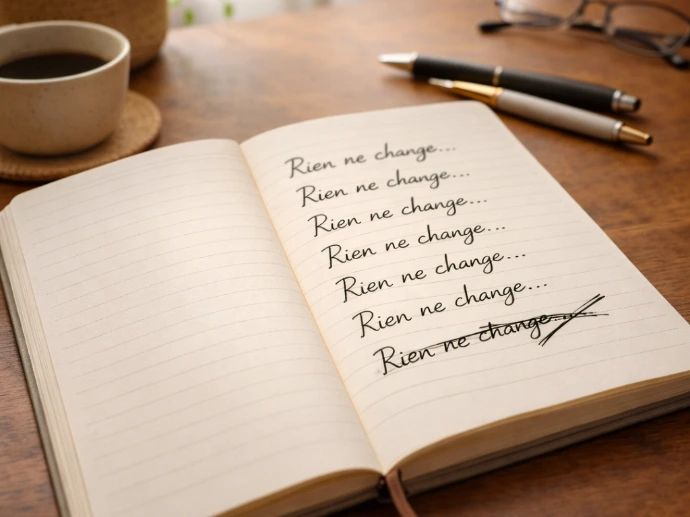 Rien ne change...
Rien ne change...
Rien ne change...
Rien ne change...
Rien ne change...
Rien ne change...
Rien ne change...